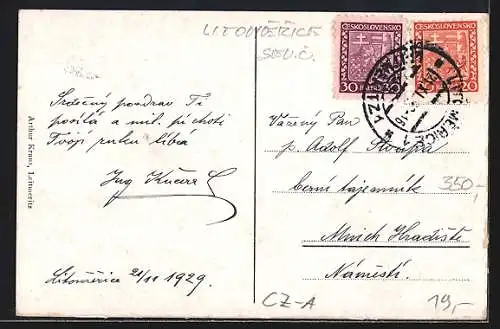 LITOMĚŘICE
SEV. Č.
ČESKOSLOVENSKO
ČESKOSLOVENSKO
30 30
20
Srdečný pozdrav Ti
posílá a mil. p. choti
Tvojí ruku líbá
Ing Kučera
Litoměřice 21/11 1929.
Arthur Kraus, Leitmeritz
Vážený Pan
p. Adolf
berní tajemník
350,-
Mnich. Hradiště
Náměstí.
CZ-A
19,-